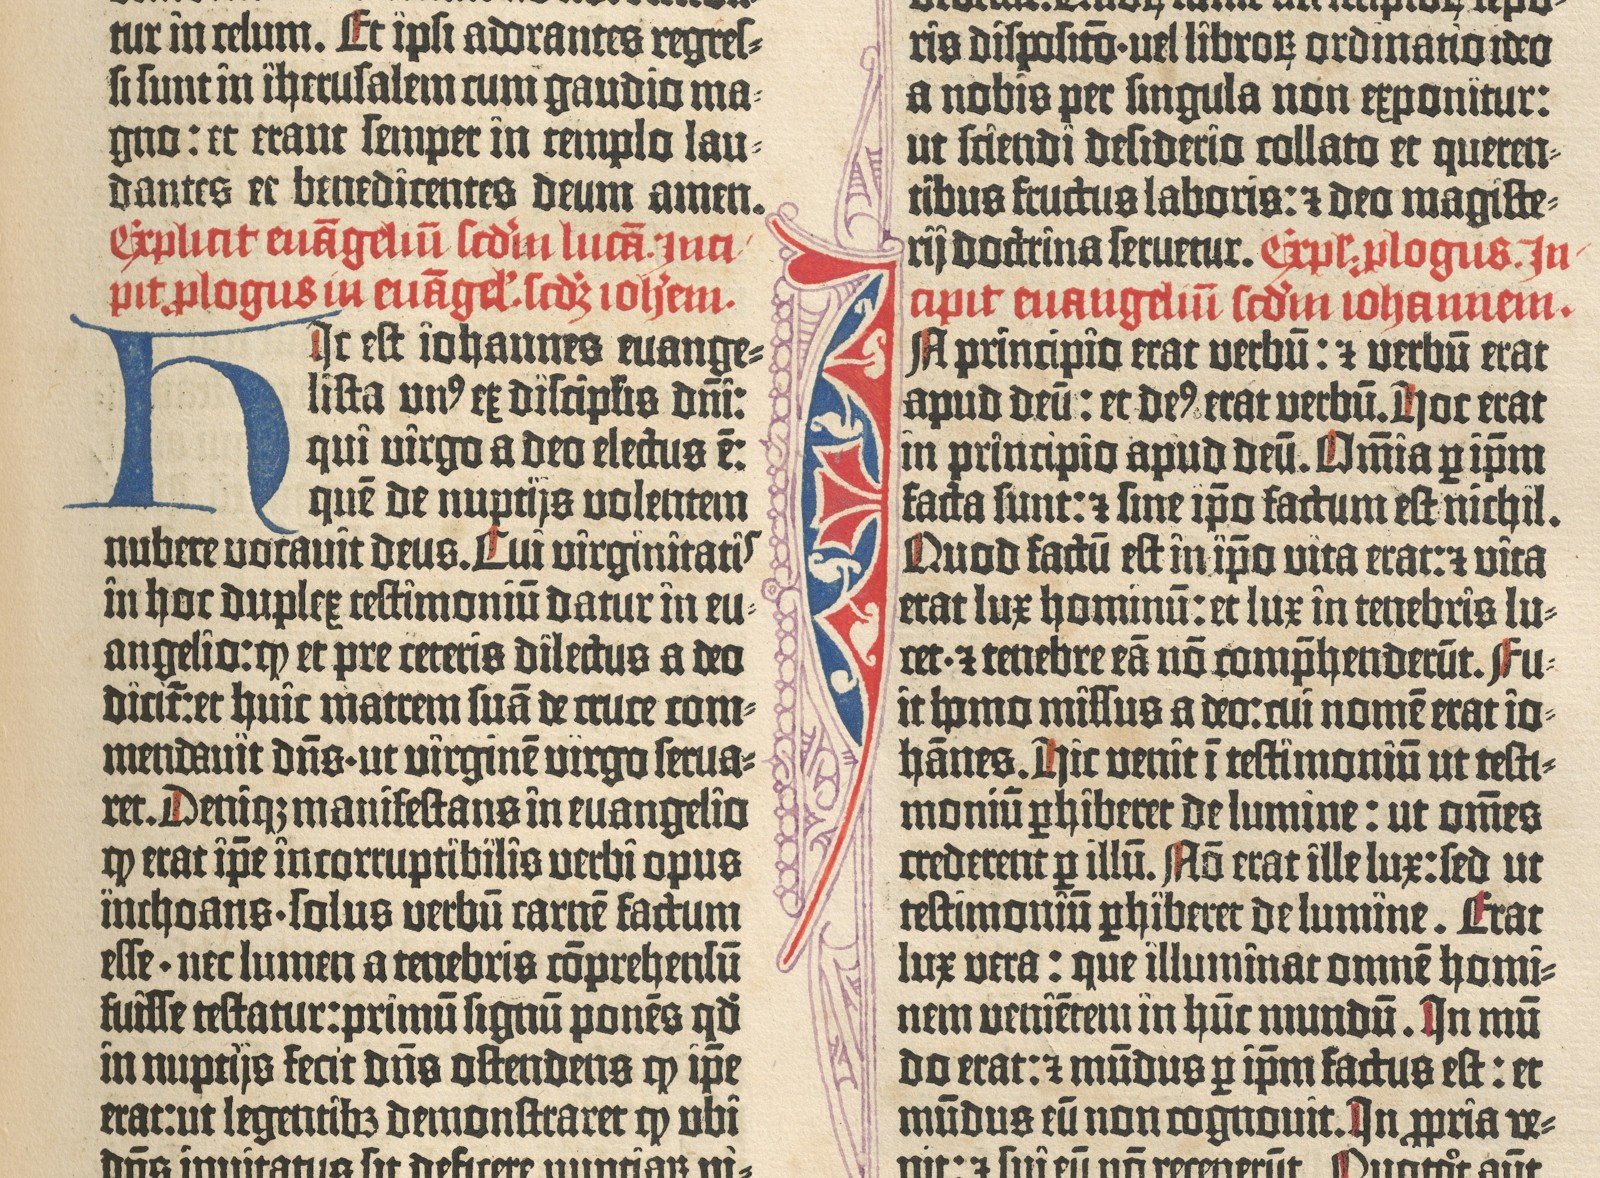 tur in celum. Et ipsi adorantes regres⸗
si sunt in iherusalem cum gaudio ma⸗
gno: et erant semper in templo lau⸗
dantes et benedicentes deum amen.
Explicit euāgeliū scd'm lucā. Inci
pit ꝓlogus in euāgel'. scdꝫ ioh'em.
HIc est iohannes euange⸗
lista vnꝰ ex discipl'is dn̄i:
qui virgo a deo electus ē:
quē de nuptijs volentem
nubere vocauit deus. Cui virginitatis
in hoc duplex testimoniū datur in eu⸗
angelio: ꝙ et pre ceteris dilectus a deo
dicit̄: et huic matrem suā de cruce com⸗
mendauit dn̄s· ut virginē virgo serua⸗
ret. Deniqꝫ manifestans in euangelio
ꝙ erat ip̄e incorruptibilis verbi opus
inchoans· solus verbū carnē factum
esse· nec lumen a tenebris cōprehensū
fuisse testatur: primū signū ponēs qd'
in nuptijs fecit dn̄s ostendens ꝙ ip̄e
erat: ut legentibꝫ demonstraret ꝙ ubi
dn̄s inuitatus sit deficere nuptiaꝝ vi⸗
ris disposito· uel libroꝝ ordinatio ideo
a nobis per singula non exponitur:
ut sciendi desiderio collato et queren⸗
tibus fructus laboris: ⁊ deo magiste⸗
rij doctrina seruetur. Expl'. ꝓlogus. In
cipit euangeliū scd'm iohannem.
IN principio erat verbū: ⁊ verbū erat
apud deū: et deꝰ erat verbū. Hoc erat
in principio apud deū. Om̄ia ꝑ ip̄m
facta sunt: ⁊ sine ip̄o factum est nichil.
Quod factū est in ip̄o vita erat: ⁊ vita
erat lux hominū: et lux in tenebris lu⸗
cet· ⁊ tenebre eā nō comp̄henderūt. Fu⸗
it homo missus a deo: cui nomē erat io⸗
hānes. Hic venit ī testimoniū ut testi⸗
moniū ꝑhiberet de lumine: ut om̄es
crederent ꝑ illū. Nō erat ille lux: sed ut
testimoniū ꝑhiberet de lumine. Erat
lux vera: que illuminat omnē homi⸗
nem veniētem in hūc mundū. In mū
do erat: ⁊ mūdus ꝑ ip̄m factus est: et
mūdus eū non cognouit. In ꝓpria ve⸗
nit: ⁊ sui eū nō receperūt. Quotqͦt aūt